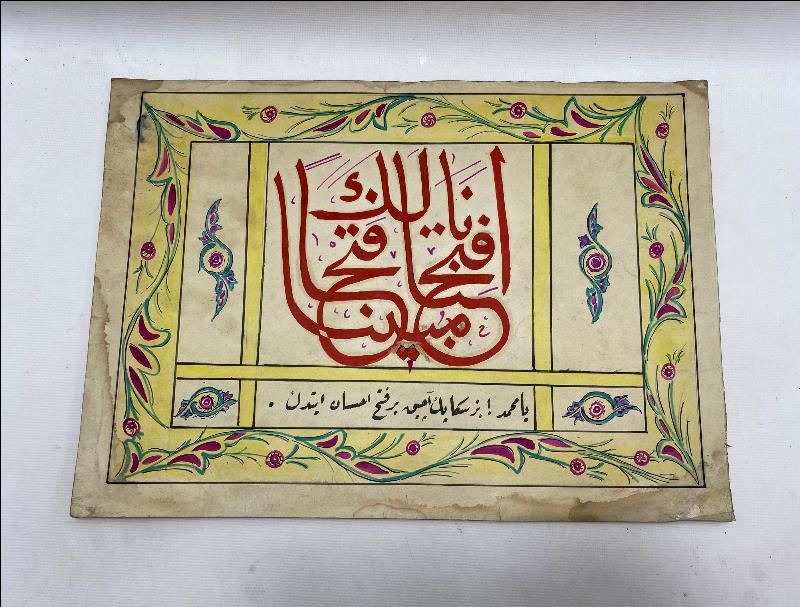 انا فتحنا لك فتحا مبينا
يا محمد! بز سكا پك آچيق بر فتح احسان ايتدك.